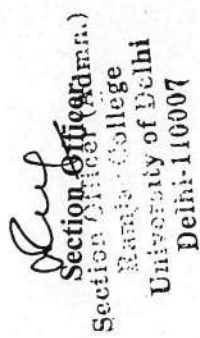 Section Officer
Section Officer (Admn.)
Ramjas College
University of Delhi
Delhi-110007